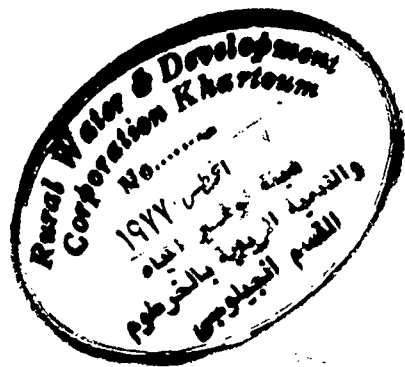 Rural Water & Development
Corporation Khartoum
No.......
اغسطس ١٩٧٧
هيئة توفير المياه
والتنمية الريفية بالخرطوم
القسم الجيلوجى